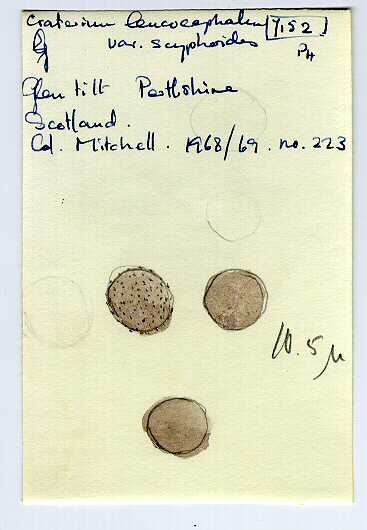 Craterium leucocephalum [7152]
var. scyphoides PH
Glen tilt Perthshire
Scotland.
Col. Mitchell. 1968/69. no. 223
10.5 µ